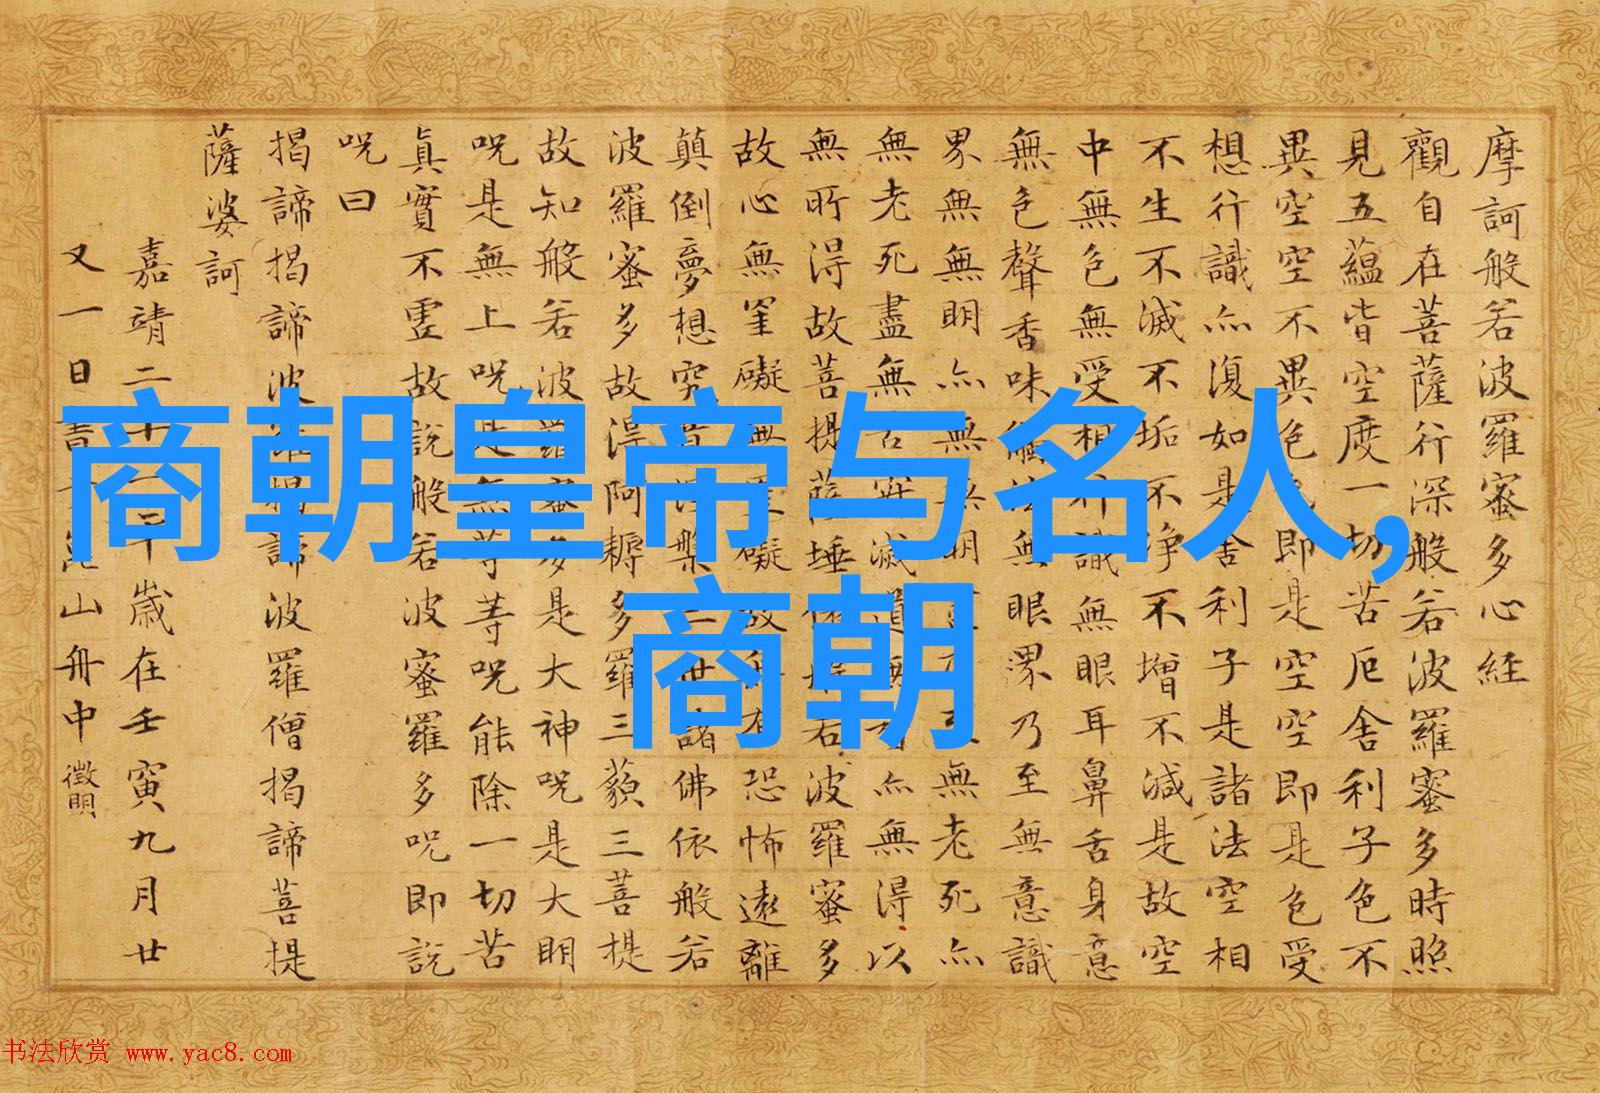 商朝皇帝与名人,
商朝
摩訶般若波羅蜜多心経
觀自在菩薩行深般若波羅蜜多時照
見五蘊皆空度一切苦厄舍利子色不
異空空不異色色即是空空即是色受
想行識亦復如是舍利子是諸法空相
不生不滅不垢不淨不增不減是故空
中無色無受想行識無眼耳鼻舌身意
無色聲香味觸法無眼界乃至無意識
界無無明亦無無明至無老死亦
無老死盡無苦集滅道無亦無得以
無所得故菩提薩埵依般若波羅蜜多
故心無罣礙無罣礙故無有恐怖遠離
顛倒夢想究竟涅槃三世諸佛依般若
波羅蜜多故得阿耨多羅三藐三菩提
故知般若波羅蜜多是大神咒是大明
咒是無上咒是無等等咒能除一切苦
真實不虛故説般若波羅蜜多咒即説
咒曰
揭諦揭諦波羅揭諦波羅僧揭諦菩提
薩婆訶
嘉靖二十一年歲在壬寅九月廿
又一日書崑山舟中 徵明
书法欣赏 www.yac8.com